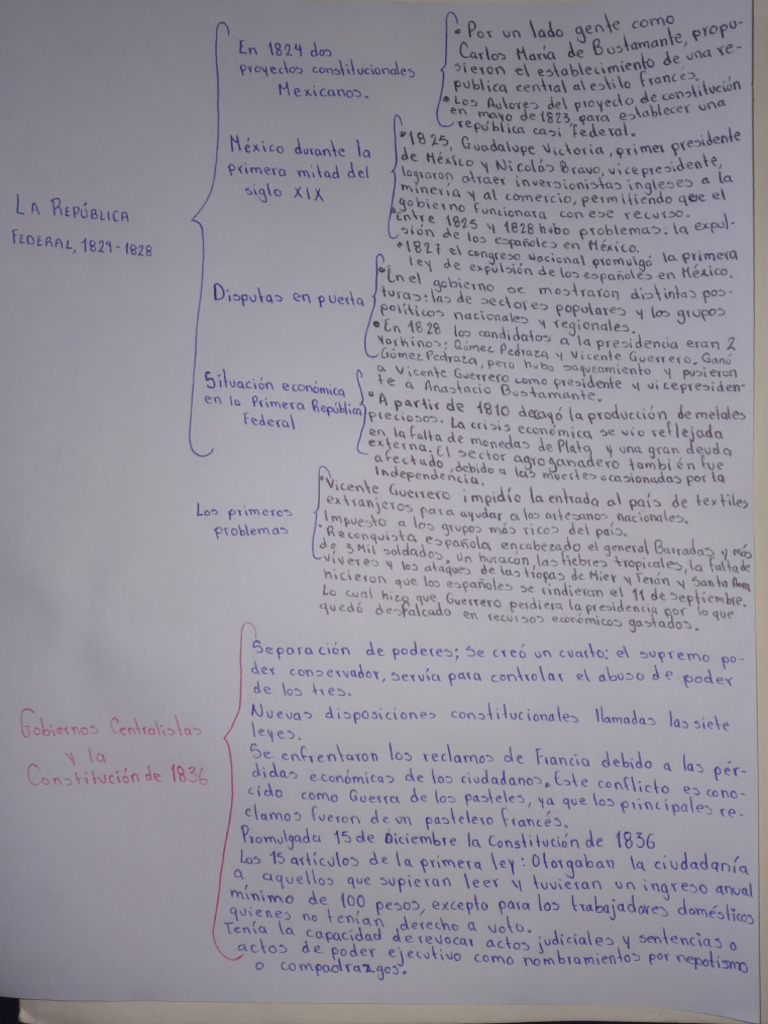 LA REPÚBLICA
FEDERAL, 1824-1828
En 1824 dos
proyectos constitucionales
Mexicanos.
• Por un lado gente como
Carlos María de Bustamante, propu-
sieron el establecimiento de una re-
publica central al estilo francés.
• Los Autores del proyecto de constitución
en mayo de 1823, para establecer una
república casi federal.
México durante la
primera mitad del
siglo XIX
• 1825, Guadalupe Victoria, primer presidente
de México y Nicolás Bravo, vicepresidente,
lograron atraer inversionistas ingleses a la
minería y al comercio, permitiendo que el
gobierno funcionara con ese recurso.
• Entre 1825 y 1828 hubo problemas: la expul-
sión de los españoles en México.
• 1827 el congreso nacional promulgó la primera
ley de expulsión de los españoles en México.
Disputas en puerta
• En el gobierno se mostraron distintas pos-
turas: las de sectores populares y los grupos
políticos nacionales y regionales.
• En 1828 los candidatos a la presidencia eran 2
Yorkinos: Gómez Pedraza y Vicente Guerrero. Ganó
Gómez Pedraza, pero hubo saqueamiento y pusieron
a Vicente Guerrero como presidente y vicepresiden-
te a Anastacio Bustamante.
Situación económica
en la Primera República
Federal
• A partir de 1810 decayó la producción de metales
preciosos. La crisis económica se vio reflejada
en la falta de monedas de Plata y una gran deuda
externa. El sector agroganadero también fue
afectado, debido a las muertes ocasionadas por la
Independencia.
Los primeros
problemas
• Vicente Guerrero impidío la entrada al país de textiles
extranjeros para ayudar a los artesanos nacionales.
Impuesto a los grupos más ricos del país.
• Reconquista española, encabezado el general Barradas y más
de 3 Mil soldados, un huracán, las fiebres tropicales, la falta de
víveres y los ataques de las tropas de Mier y Terán y Santa Anna
hicieron que los españoles se rindieran el 11 de septiembre.
Lo cual hizo que, Guerrero perdiera la presidencia por lo que
quedó desfalcado en recursos económicos gastados.
Gobiernos Centralistas
y la
Constitución de 1836
Separación de poderes; se creó un cuarto: el supremo po-
der conservador, servía para controlar el abuso de poder
de los tres.
Nuevas disposiciones constitucionales llamadas las siete
leyes.
Se enfrentaron los reclamos de Francia debido a las pér-
didas económicas de los ciudadanos. Este conflicto es cono-
cido como Guerra de los pasteles, ya que los principales re-
clamos fueron de un pastelero francés.
Promulgada 15 de Diciembre la Constitución de 1836
Los 15 artículos de la primera ley: Otorgaban la ciudadanía
a aquellos que supieran leer y tuvieran un ingreso anual
mínimo de 100 pesos, excepto para los trabajadores domésticos
quienes no tenían derecho a voto.
Tenía la capacidad de revocar actos judiciales y sentencias o
actos de poder ejecutivo como nombramientos por nepotismo
o compadrazgos.